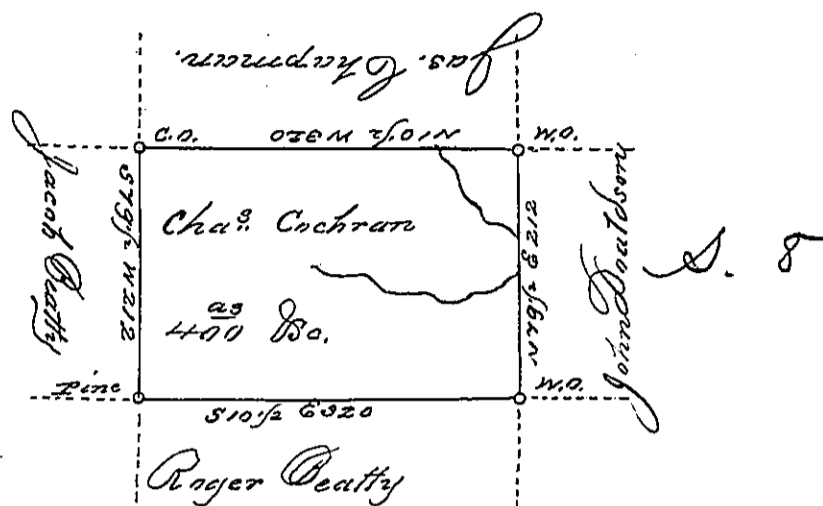 Jas. Chapman.
C.O.
N10½ W320
W.O.
Jacob Beatty
S79½ W212
Chas. Cochran
400 as &c.
N79½ E212
John Donaldson
S. 8
Pine
S10½ E320
W.O.
Roger Beatty